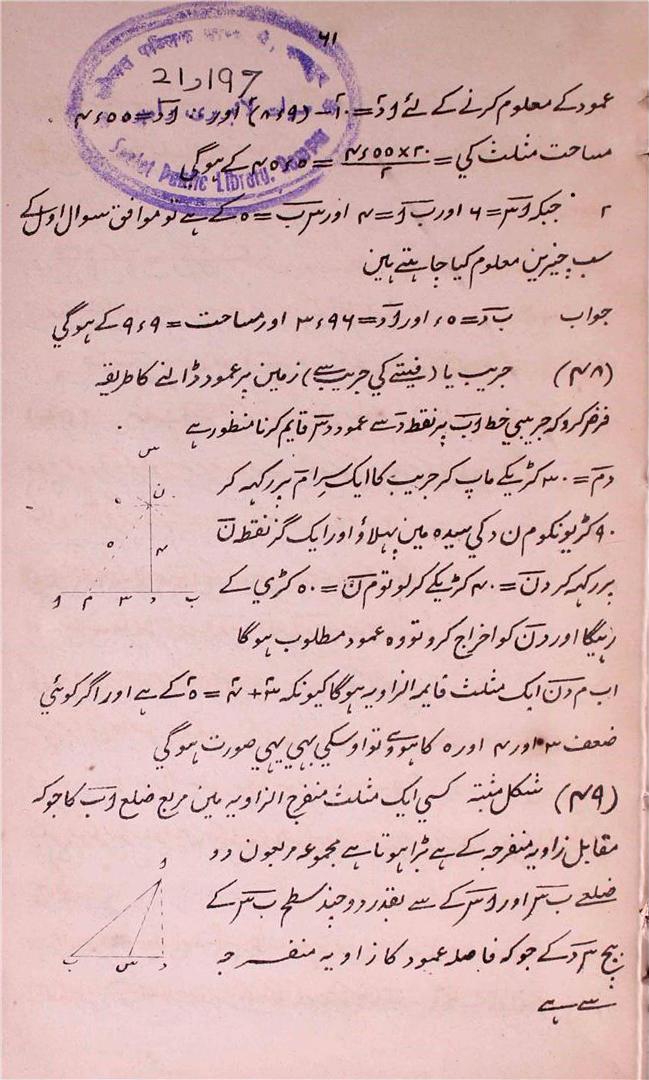 ۶۱
21و197
Soviet Public Library,
عمود کے معلوم کرنے کے لئے اد = ۱۰ - (۸٫۹) اور اد = ۴٫۵۵
مساحت مثلث کی = ۴٫۵۵×۲۰ / ۲ = ۴۵٫۵ کے ہوگی
۲ جبکہ اس = ۶ اور ب ا = ۴ اور س ب = ۵ کے ہے تو موافق سوال اول کے
سب چیزین معلوم کیا چاہتے ہین
جواب ب د = ۵ ٫ اور اد = ۳٫۹۶ اور مساحت = ۹٫۹ کے ہوگی
(۴۸) جریب یا (فیتے کی جریب سے) زمین پر عمود ڈالنے کا طریقہ
فرض کرو کہ جریبی خط اب پر نقط د سے عمود دس قایم کرنا منظور ہے
دم = ۳۰ کڑیکے ماپ کر جریب کا ایک سِرا م پر رکہہ کر
۹۰ کڑیونکو م ن د کی سیدہ مین پہیلاؤ اور ایک گز نقط ن
پر رکہہ کر دن = ۴۰ کڑیکے کر لو تو م ن = ۵۰ کڑی کے
رہیگا اور دن کو اخراج کرو تو وہ عمود مطلوب ہوگا
اب م دن ایک مثلث قایمہ الزاویہ ہوگا کیونکہ ۳ + ۴ = ۵ کے ہے اور اگر کوئی
ضعف ۳ اور ۴ اور ۵ کا ہووے تو اوسکی بہی یہی صورت ہوگی
(۴۹) شکل مثبتہ کسی ایک مثلث منفرج الزاویہ مین مربع ضلع اب کا جو کہ
مقابل زاویہ منفرجہ کے ہے بڑا ہوتا ہے مجموعہ مربعون دو
ضلعے ب س اور اس کے سے بقدر دو چند سطح ب س کے
بیچ س د کے جو کہ فاصلہ عمود کا زاویہ منفرجہ
سے ہے
س
ن
۵
۴
ا م ۳ د ب
ا
ب س د